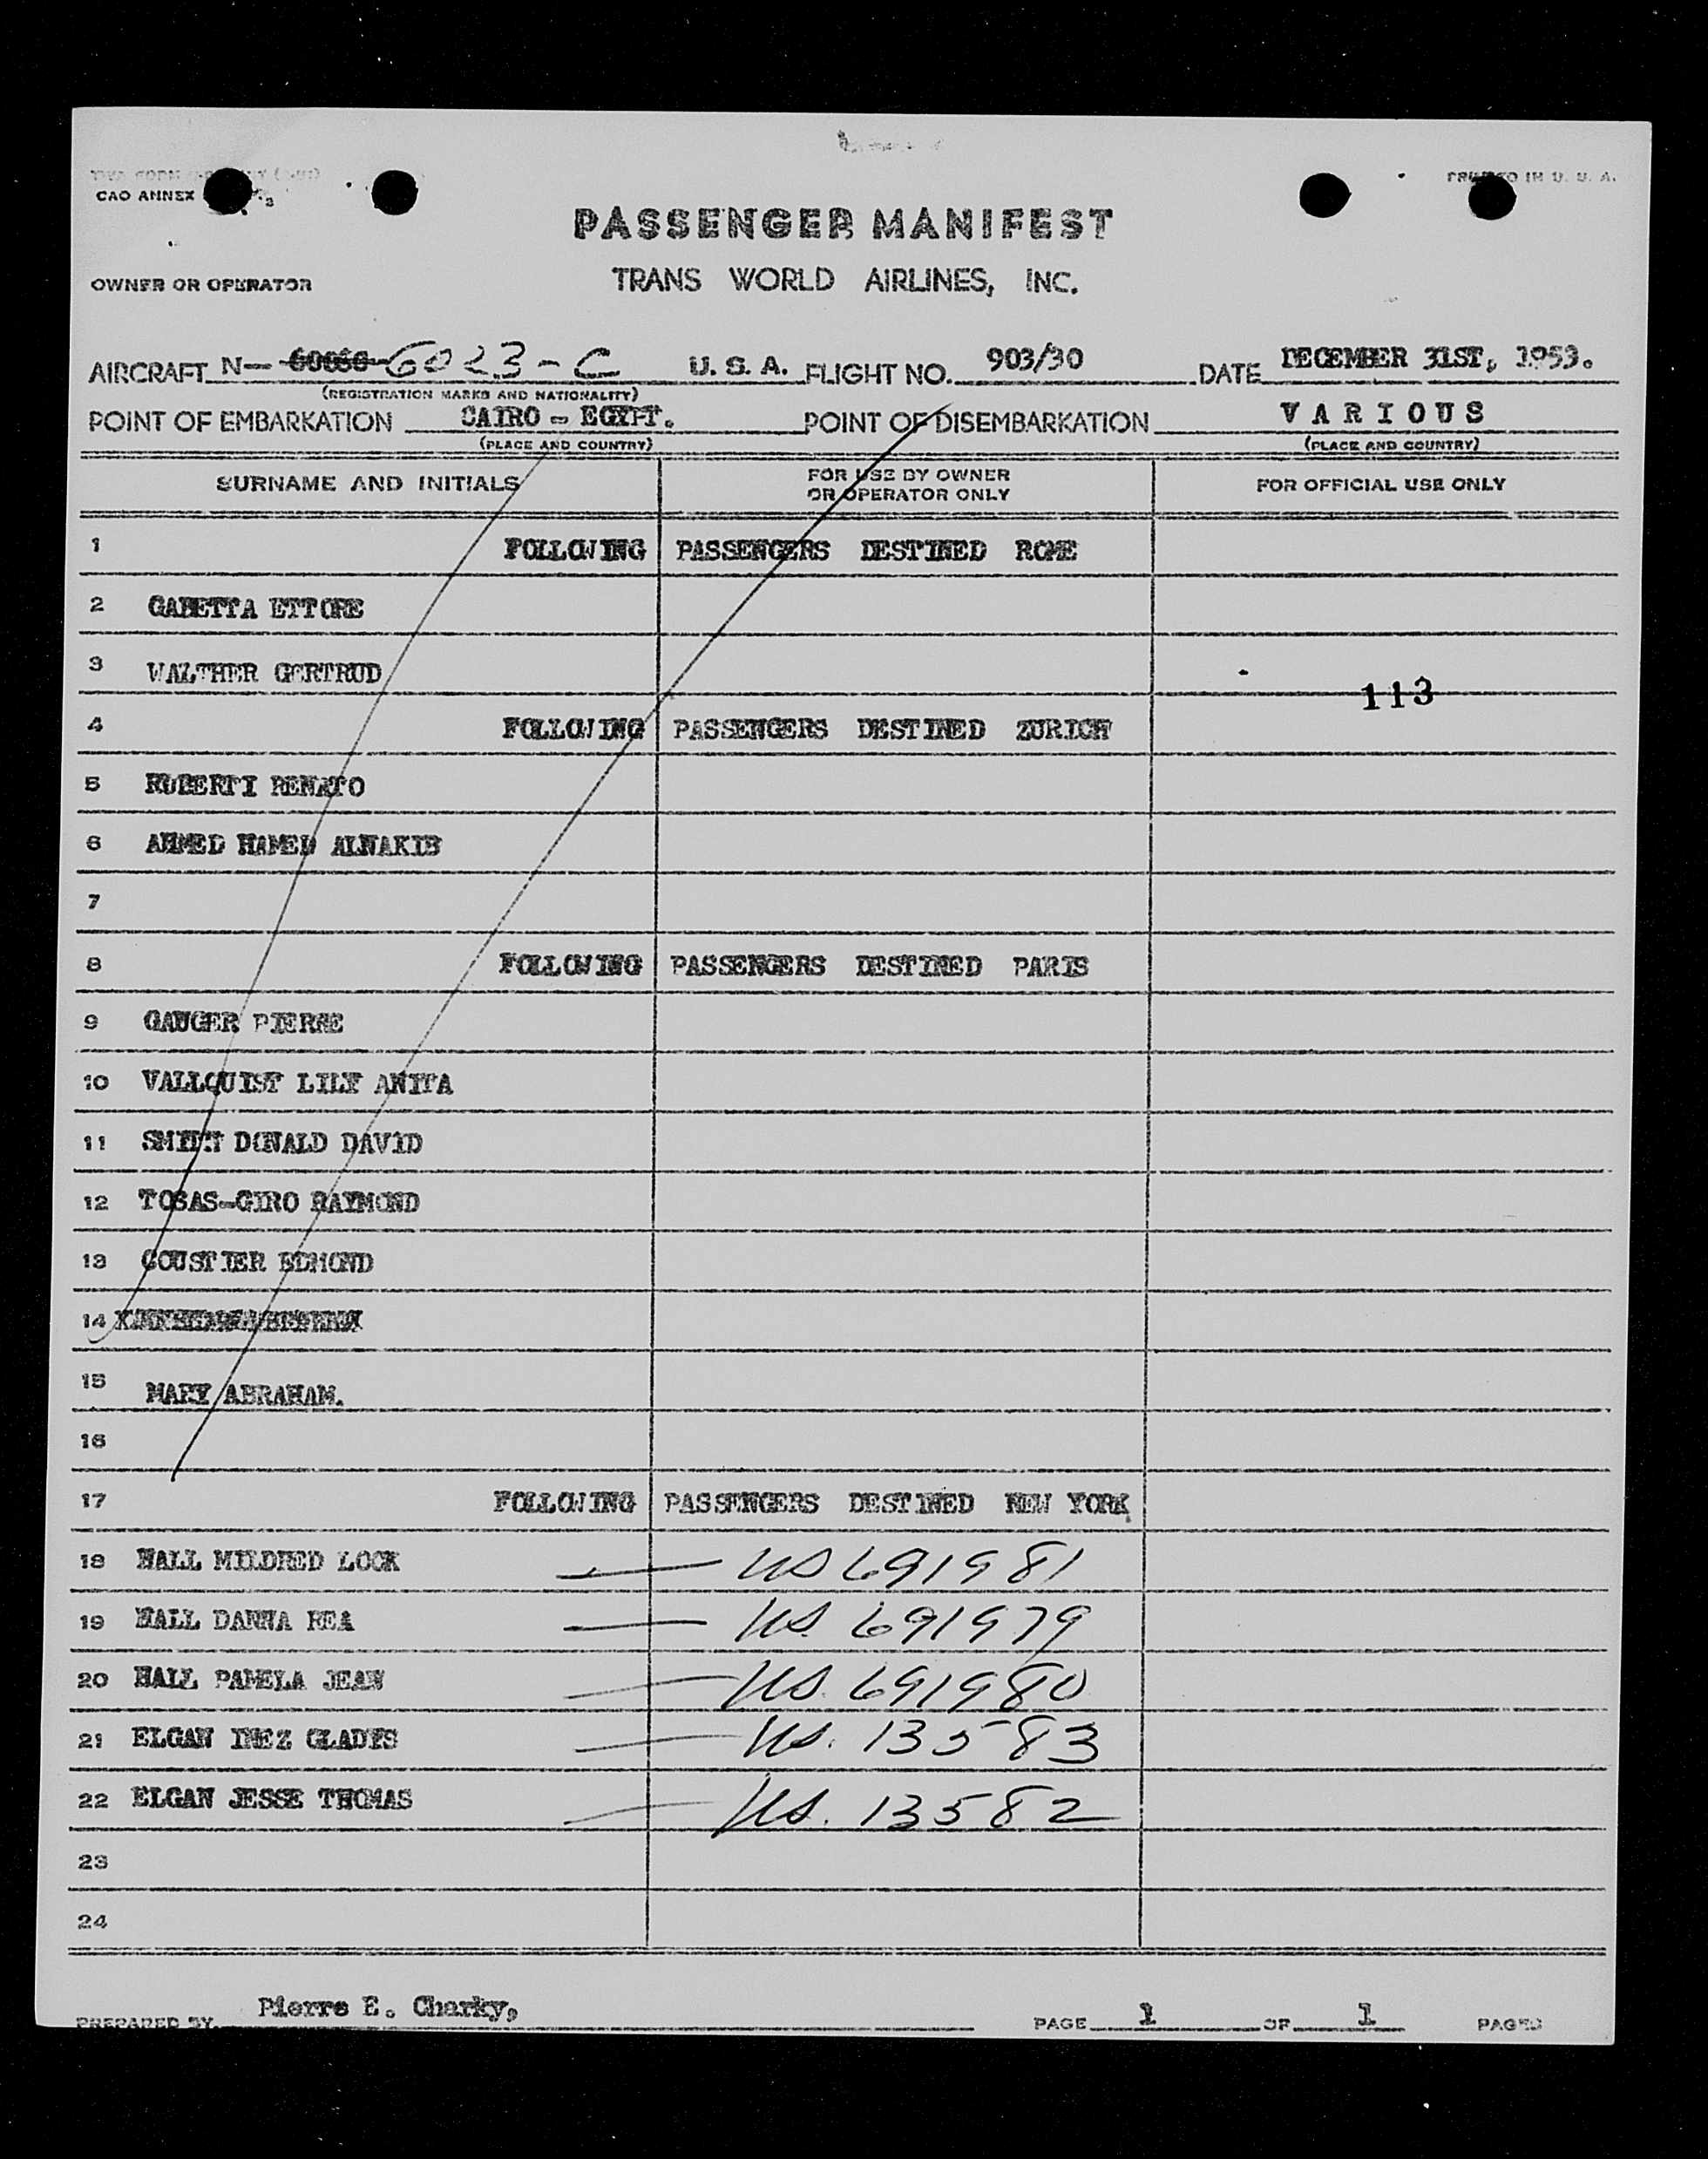 CAO ANNEX
PRINTED IN U. S. A.
PASSENGER MANIFEST
OWNER OR OPERATOR TRANS WORLD AIRLINES, INC.
AIRCRAFT N- 6023-C U. S. A. FLIGHT NO. 903/30 DATE DECEMBER 31ST, 1953.
(REGISTRATION MARKS AND NATIONALITY)
POINT OF EMBARKATION CAIRO - EGYPT. POINT OF DISEMBARKATION VARIOUS
(PLACE AND COUNTRY) (PLACE AND COUNTRY)
SURNAME AND INITIALS FOR USE BY OWNER OR OPERATOR ONLY FOR OFFICIAL USE ONLY
1 FOLLOWING PASSENGERS DESTINED ROME
2 GABETTA ETTORE
3 WALTHER GERTRUD
113
4 FOLLOWING PASSENGERS DESTINED ZURICH
5 RUBERTI RENATO
6 AHMED HAMED ALNAKIB
7
8 FOLLOWING PASSENGERS DESTINED PARIS
9 GAUGER PIERRE
10 VALLQUIST LILY ANITA
11 SMITH DONALD DAVID
12 TOSAS-GIRO RAYMOND
13 COUSTIER EDMOND
14
15 MARY ABRAHAM.
16
17 FOLLOWING PASSENGERS DESTINED NEW YORK
18 HALL MILDRED LOCK — US 691981
19 HALL DANNA REA — US. 691979
20 HALL PAMELA JEAN — US. 691980
21 ELGAN INEZ GLADYS — US. 13583
22 ELGAN JESSE THOMAS — US. 13582
23
24
PREPARED BY Pierre E. Charky, PAGE 1 OF 1 PAGES